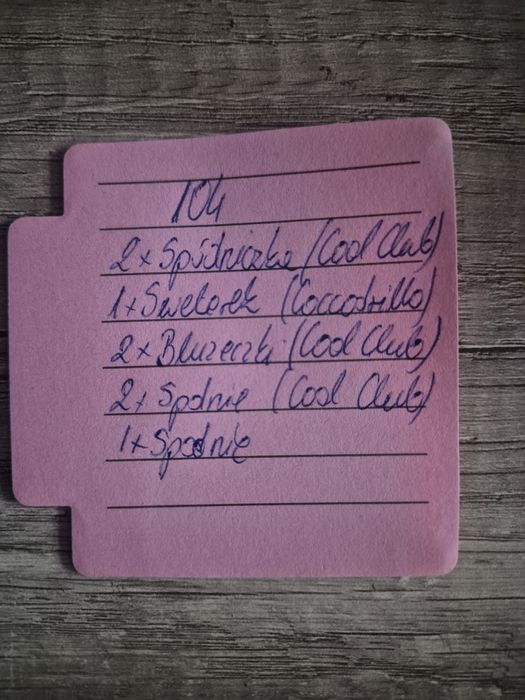 104
2x Spódniczka (Cool Club)
1x Sweterek (Coccodrillo)
2x Bluzeczki (Cool Club)
2x Spodnie (Cool Club)
1x Spodnie